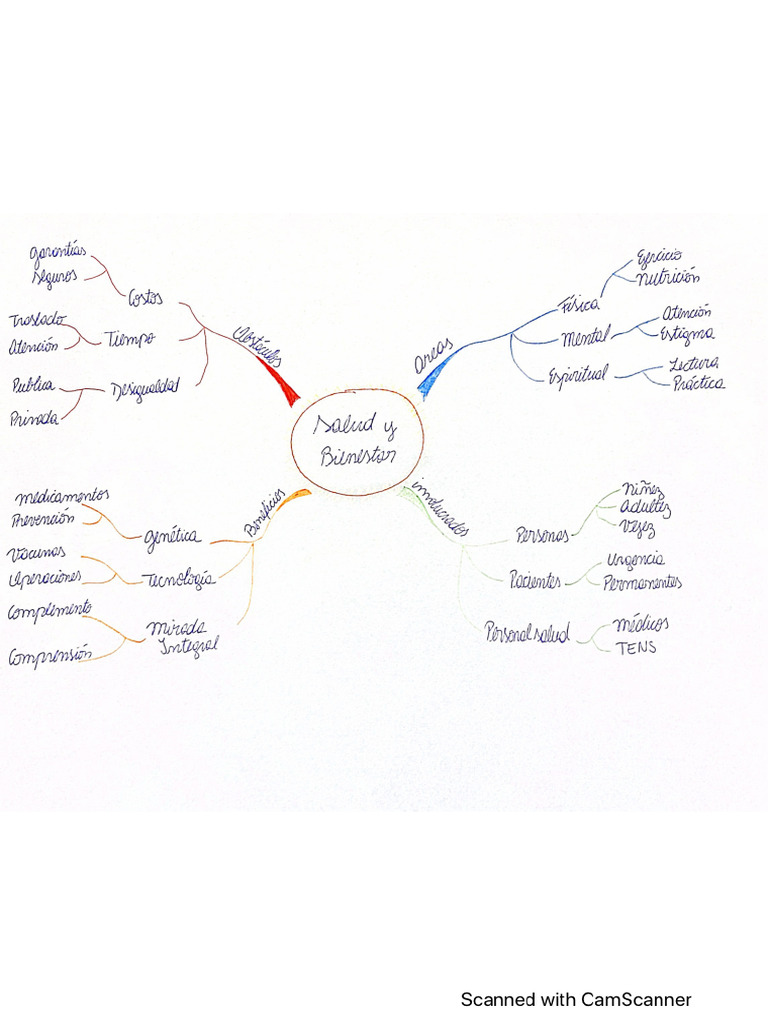 Salud y
Bienestar
Obstáculos
Costos
garantías
seguros
Tiempo
Traslado
Atención
Desigualdad
Publica
Privada
areas
Física
Ejercicio
nutrición
Mental
Atención
Estigma
Espiritual
Lectura
Práctica
Beneficios
genética
medicamentos
Prevención
Tecnología
Vacunas
Operaciones
Mirada
Integral
Complemento
Comprensión
involucrados
Personas
Niñez
Adultez
Vejez
Pacientes
Urgencia
Permanentes
Personal salud
Médicos
TENS
Scanned with CamScanner